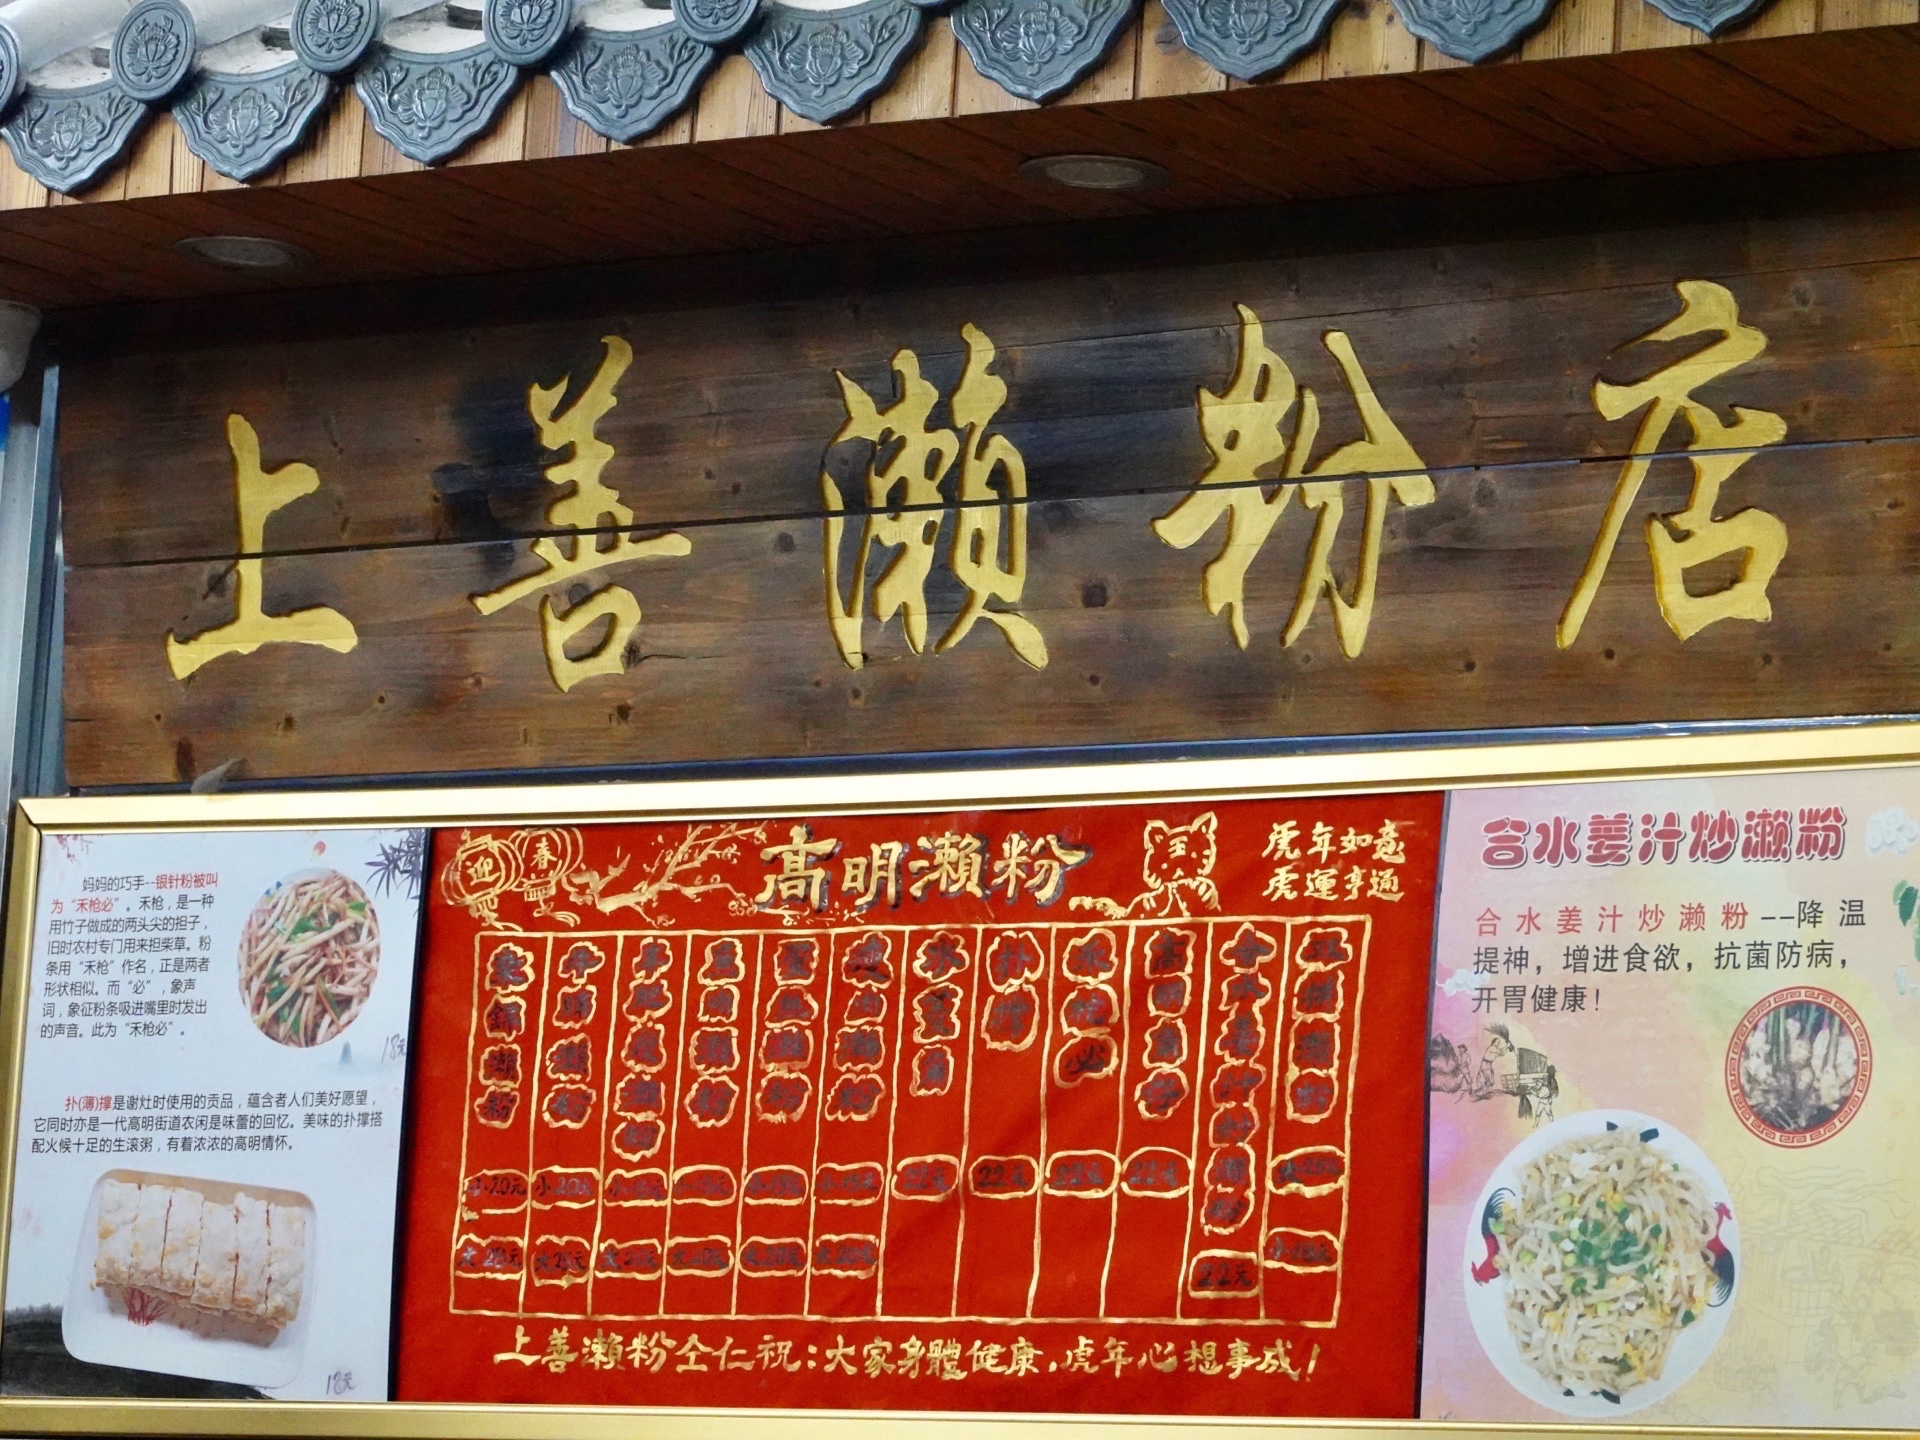 上善瀨粉店
妈妈的巧手--银针粉被叫
为“禾枪必”。禾枪，是一种
用竹子做成的两头尖的担子，
旧时农村专门用来担柴草。粉
条用“禾枪”作名，正是两者
形状相似。而“必”，象声
词，象征粉条吸进嘴里时发出
的声音。此为“禾枪必”。
18元
扑(薄)撑是谢灶时使用的贡品，蕴含者人们美好愿望，
它同时亦是一代高明街道农闲是味蕾的回忆。美味的扑撑搭
配火候十足的生滚粥，有着浓浓的高明情怀。
18元
迎春
高明瀨粉
虎年如意
虎運亨通
瀨粉 小20元 大28元
牛 瀨粉 小20元
瀨粉
瀨粉
瀨粉 大20元
瀨粉 大20元
水 22元
扑撑 22元
禾枪必 22元
高明 22元
合水姜汁炒瀨粉 22元
瀨粉
上善瀨粉仝仁祝：大家身體健康，虎年心想事成！
合水姜汁炒濑粉
合水姜汁炒濑粉--降温
提神，增进食欲，抗菌防病，
开胃健康！